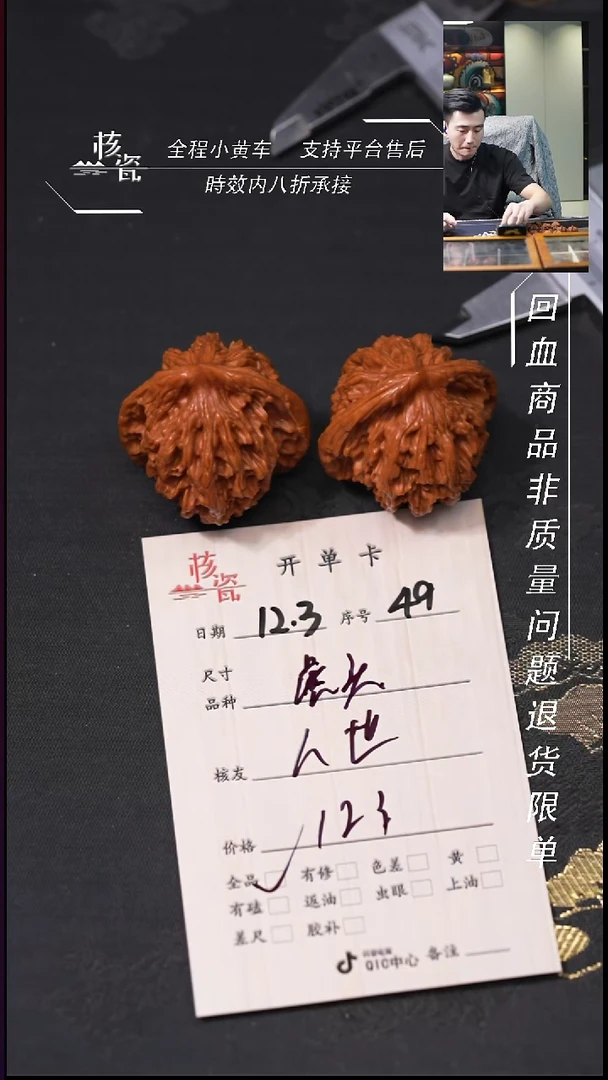 核瓷
全程小黄车 支持平台售后
時效内八折承接
回血商品非质量问题退货限单
核瓷
开单卡
日期 12.3 序号 49
尺寸
品种 虎头
核友 人也
价格 123
全品 有修 色差 黄
有磕 返油 虫眼 上油
差尺 胶补
QIC中心 备注